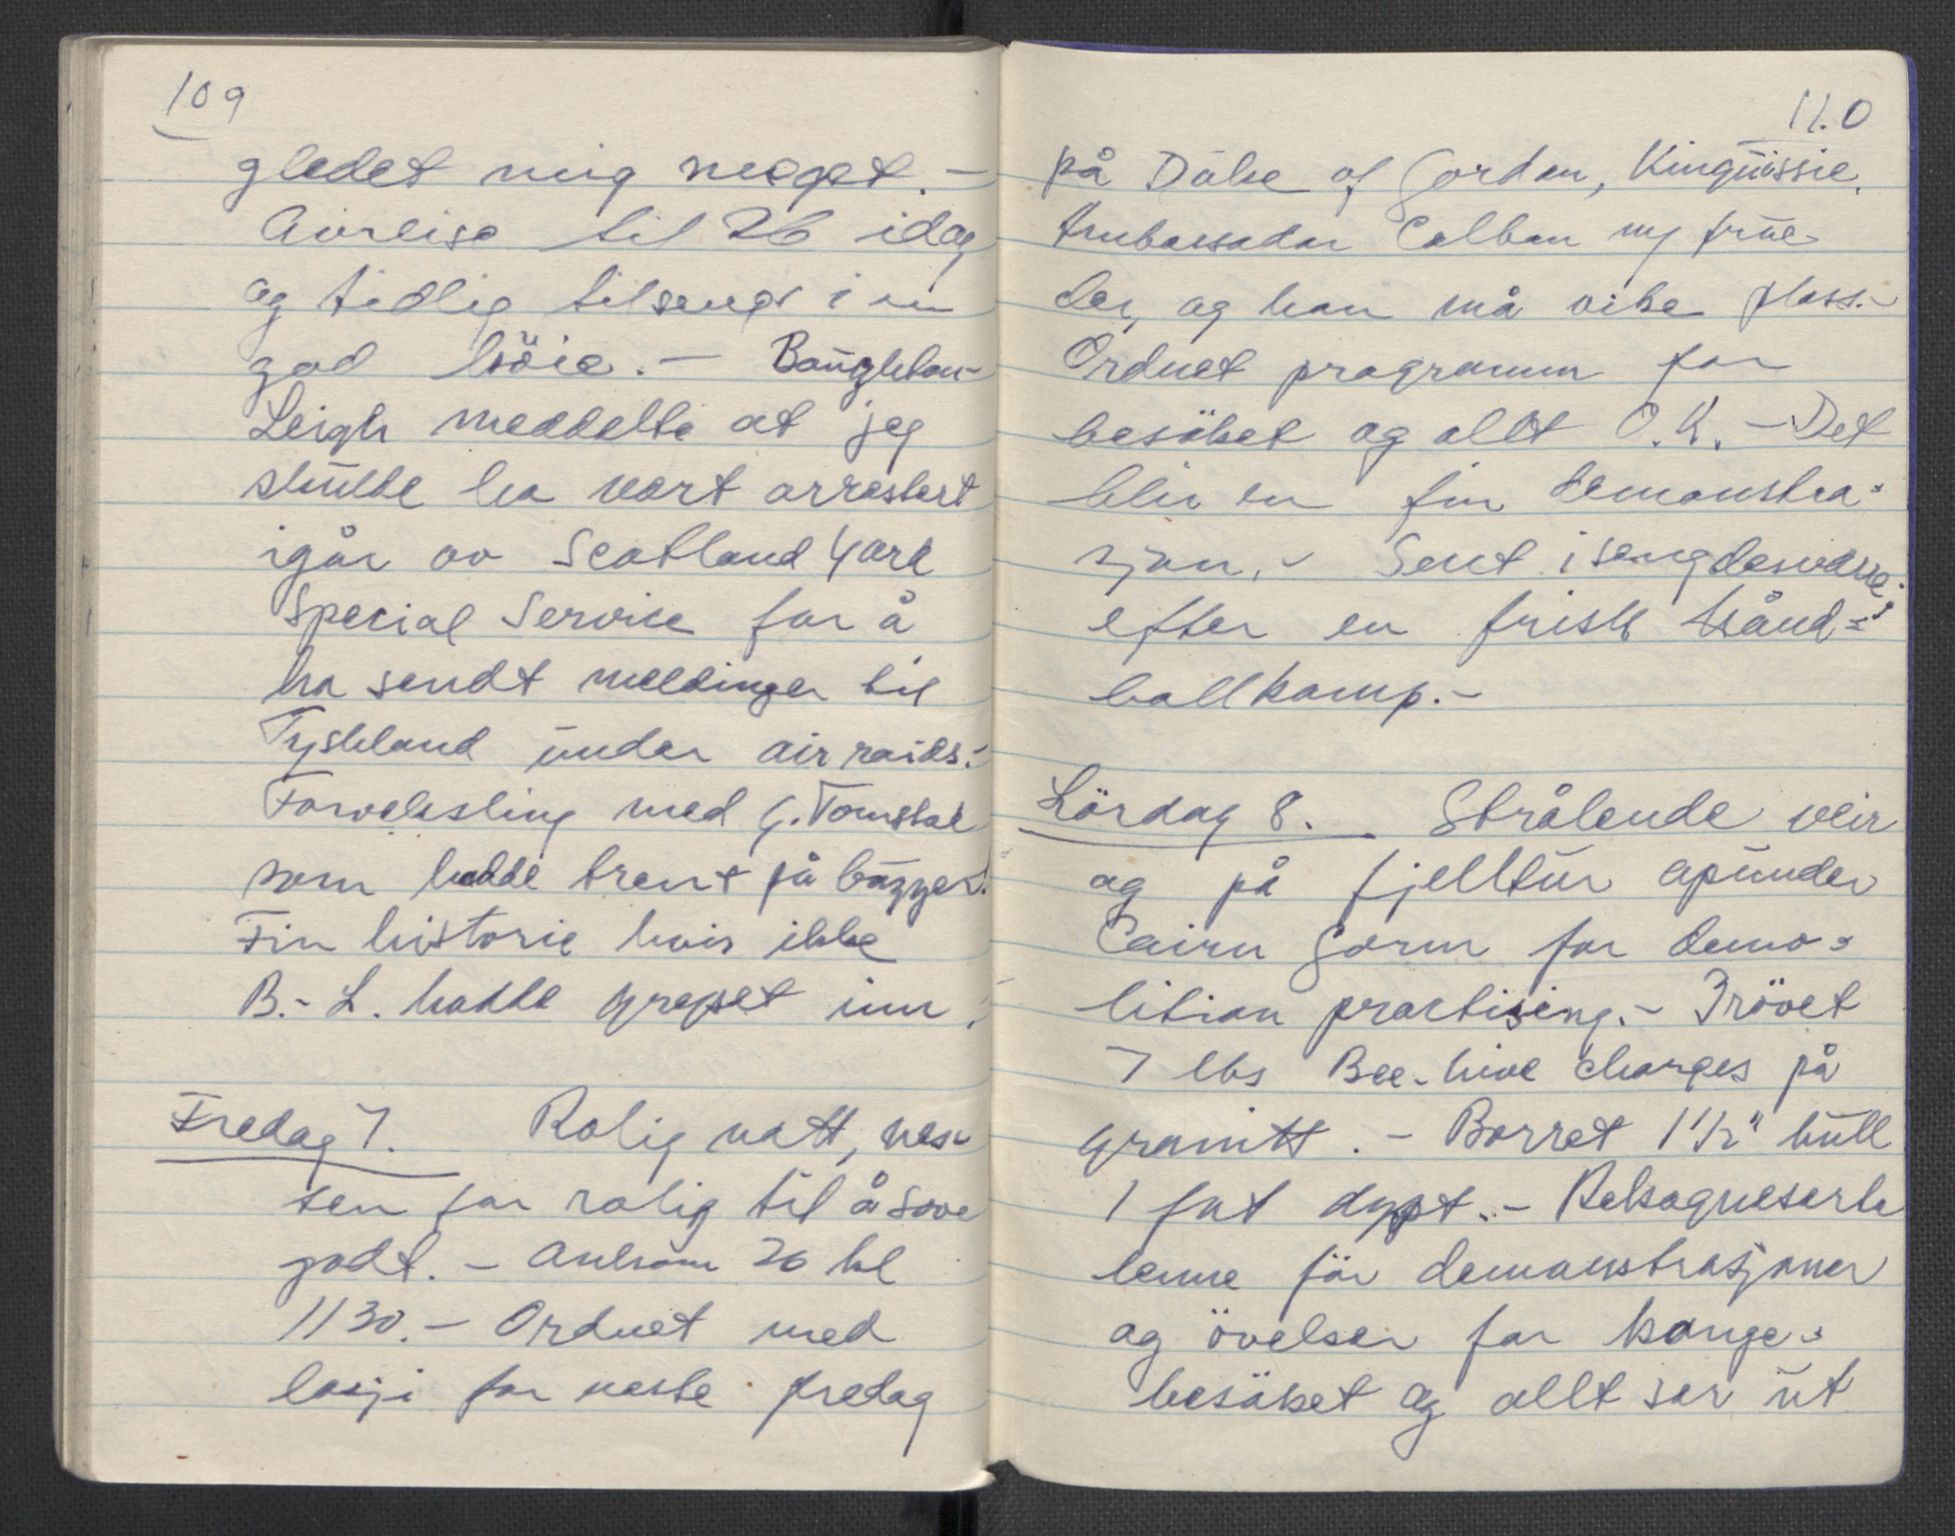 109
gledet mig meget. -
Avreise til 26 idag
og tidlig tilsengs i en
god köie. - Boughton-
Leigh meddelte at jeg
skulde ha vært arrestert
igår av Scotland Yard
Special Service for å
ha sendt meldinger til
Tyskland under air raids. -
Forveksling med G. Tomstad
som hadde trent på buzzer!
Fin historie hvis ikke
B.-L. hadde grepet inn.
Fredag 7. Rolig natt, nes-
ten for rolig til å sove
godt. - Ankom 26 kl
1130. - Ordnet med
losji for neste fredag
110
på Duke of Gordon, Kingussie.
Ambassadør Colban m/ frue
der, og han må vike plass. -
Ordnet programm for
besöket og allt O.K. - Det
blir en fin demonstra-
sjon. - Sent iseng desværre
efter en frisk hånd-
ballkamp. -
Lördag 8. Strålende veir
og på fjelltur opunder
Cairn Gorm for demo-
lition practising. - Prövet
7 lbs Bee-hive charges på
granitt. - Borret 1 1/2" hull
1 fot dypt. -
lenne för demonstrasjoner
og övelser for konge-
besöket og allt ser ut